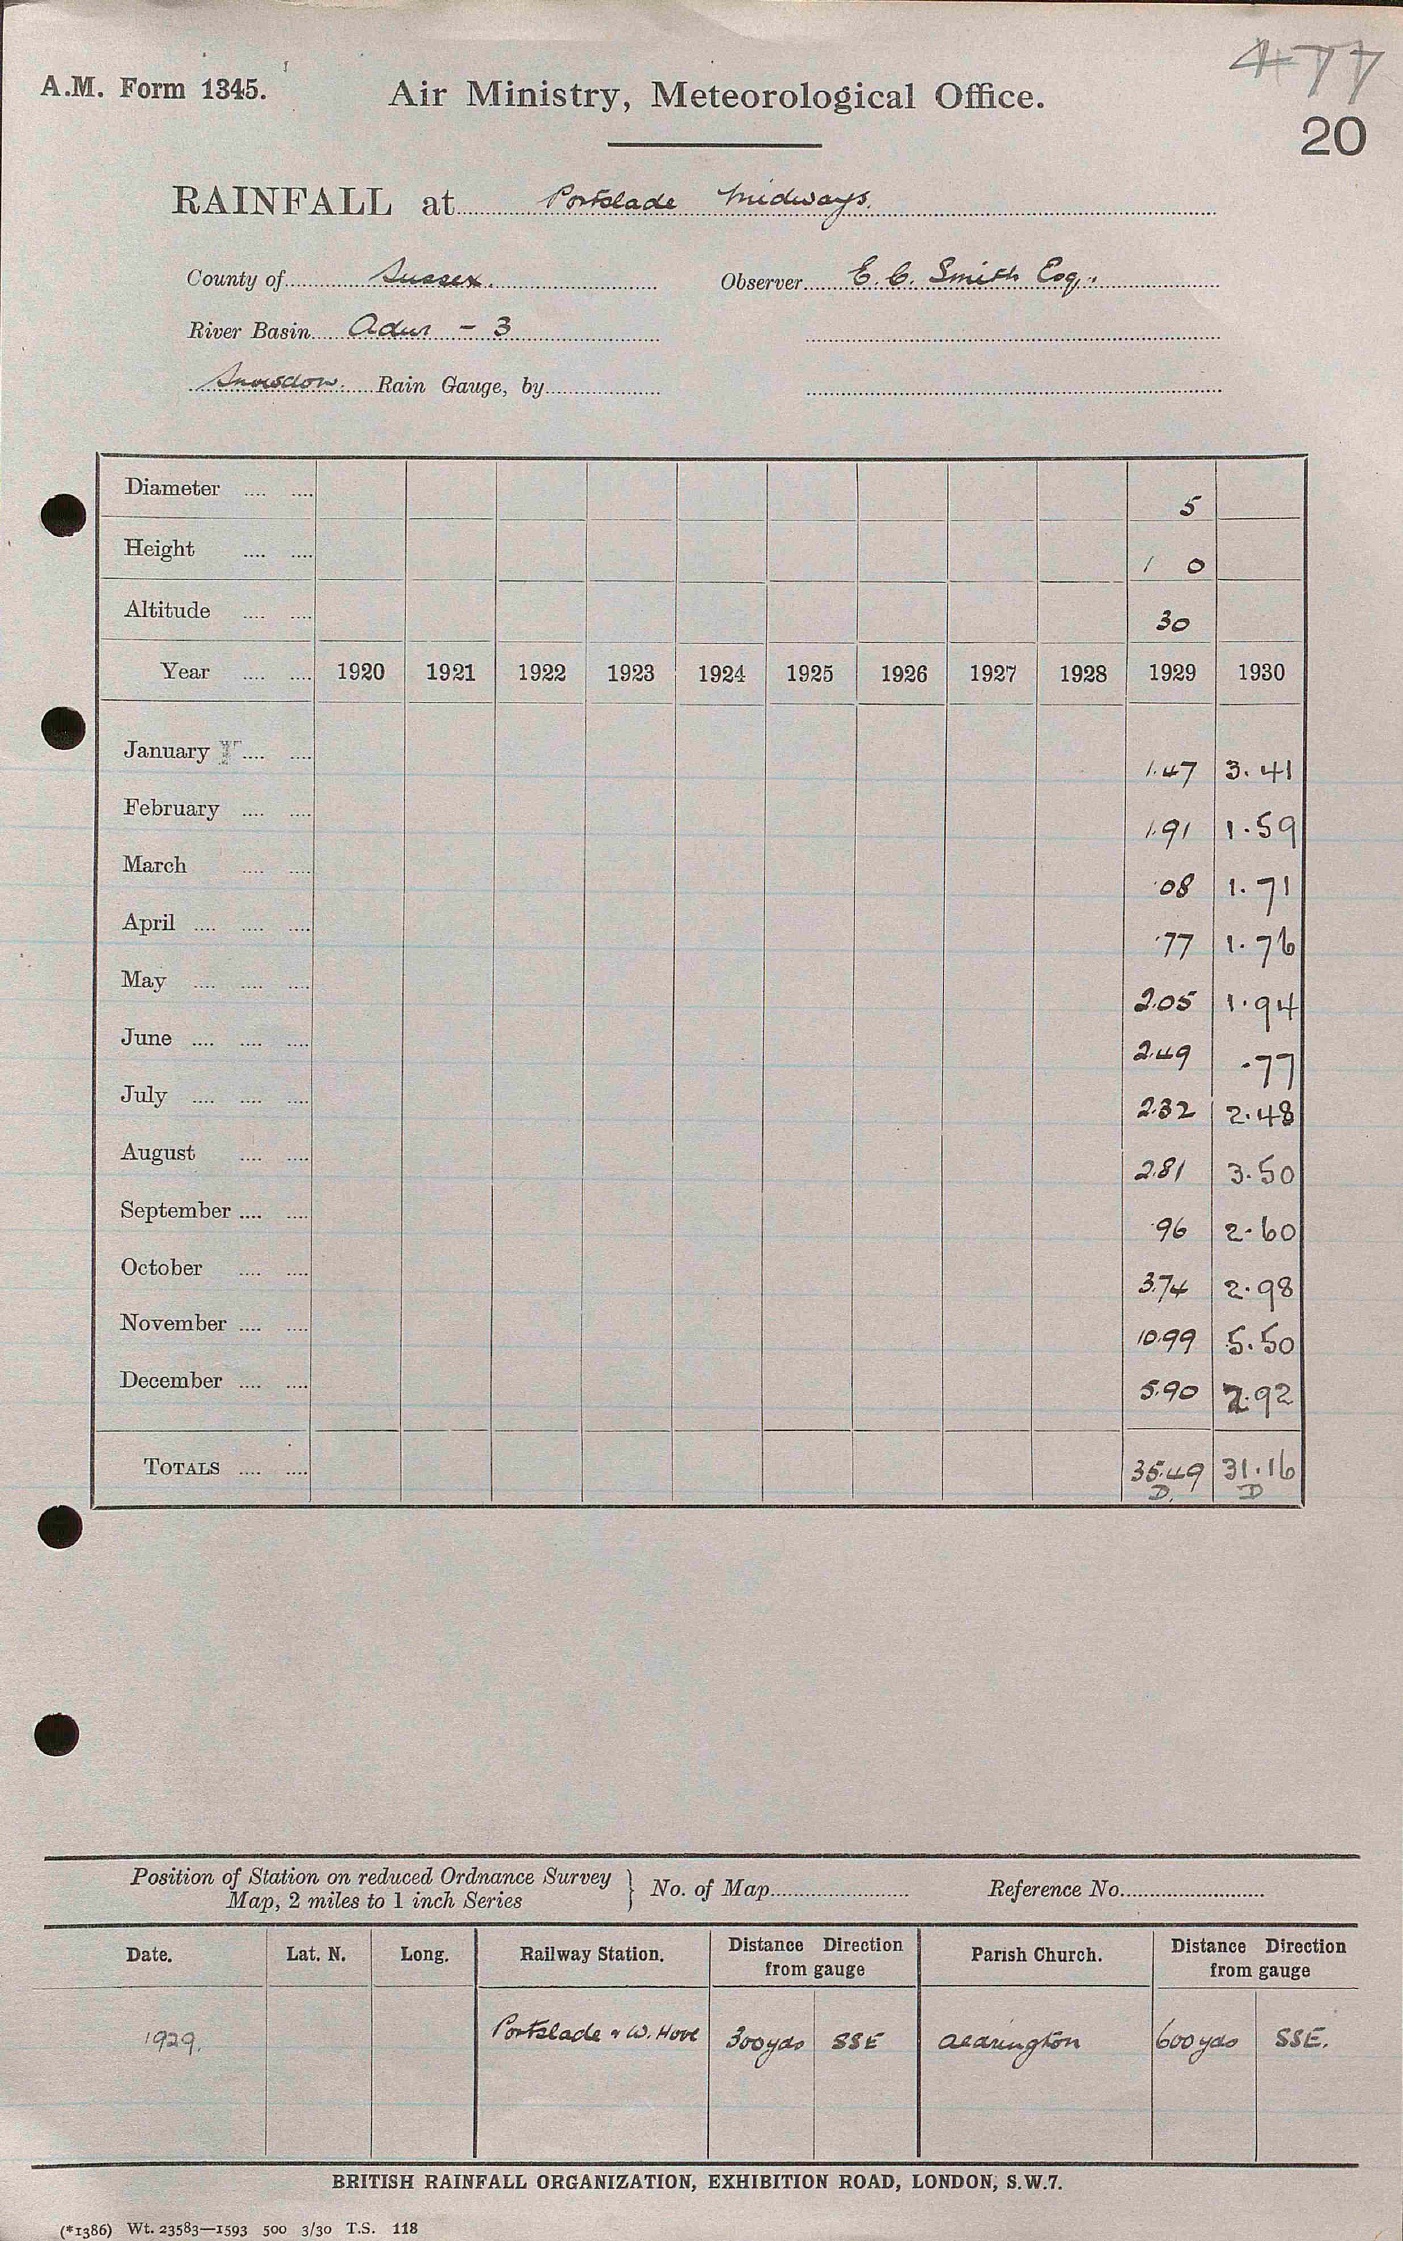 477
A.M. Form 1345.
Air Ministry, Meteorological Office.
20
RAINFALL at Portslade Midways.
County of Sussex. Observer E. C. Smith Esq.
River Basin Adur - 3
Snowdon. Rain Gauge, by
Diameter .... .... 5
Height .... .... 1 0
Altitude .... .... 30
Year .... .... 1920 1921 1922 1923 1924 1925 1926 1927 1928 1929 1930
January .... .... 1.47 3.41
February .... .... 1.91 1.59
March .... .... .08 1.71
April .... .... .... .77 1.76
May .... .... .... 2.05 1.94
June .... .... .... 2.49 .77
July .... .... .... 2.32 2.48
August .... .... 2.81 3.50
September .... .... .96 2.60
October .... .... 3.74 2.98
November .... .... 10.99 5.50
December .... .... 5.90 2.92
TOTALS .... .... 35.49 31.16
D. D
Position of Station on reduced Ordnance Survey
Map, 2 miles to 1 inch Series } No. of Map Reference No.
Date. Lat. N. Long. Railway Station. Distance Direction from gauge Parish Church. Distance Direction from gauge
1929. Portslade & W. Hove 300yds SSE Aldrington 600yds SSE.
BRITISH RAINFALL ORGANIZATION, EXHIBITION ROAD, LONDON, S.W.7.
(*1386) Wt. 23583—1593 500 3/30 T.S. 118